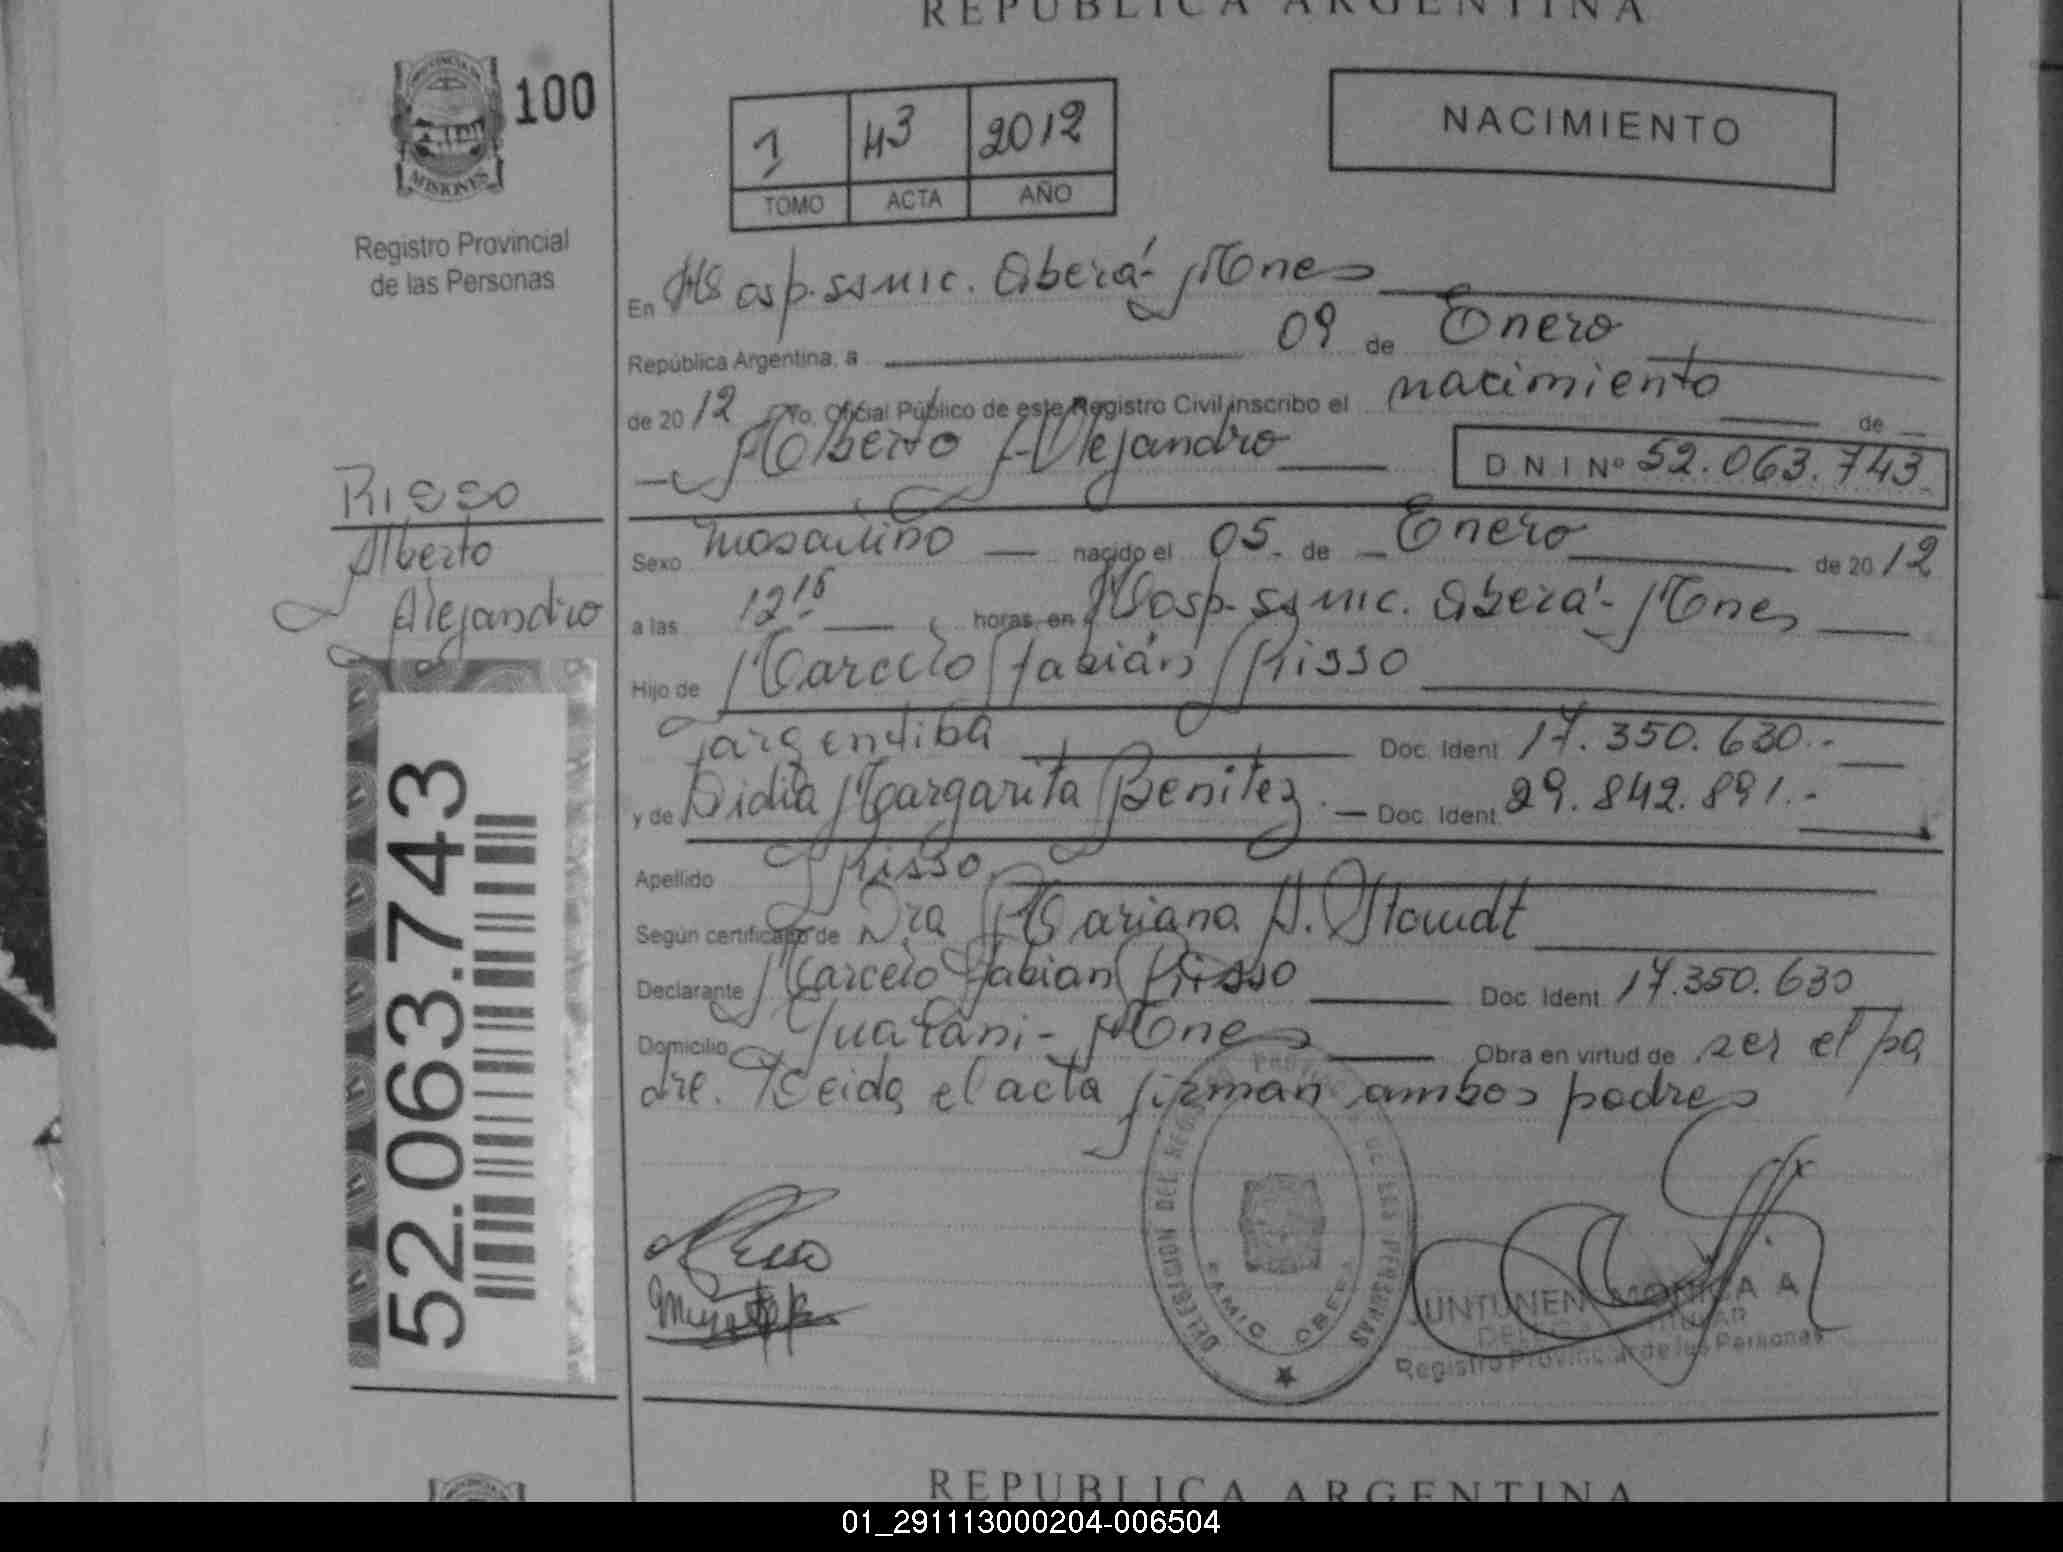 REPUBLICA ARGENTINA
PROVINCIA DE
MISIONES
100
Registro Provincial
de las Personas
1 43 2012
TOMO ACTA AÑO
NACIMIENTO
En Hosp. SSMIC. Oberá - Mnes
República Argentina, a 09 de Enero
de 2012 Yo, Oficial Público de este Registro Civil inscribo el nacimiento de
Alberto Alejandro
D N I Nº 52.063.743
Risso
Alberto
Alejandro
Sexo masculino nacido el 05 de Enero de 2012
a las 12 15 horas en Hosp. SSMIC. Oberá - Mnes
Hijo de Marcelo Fabián Risso
argentina Doc. Ident 17.350.630.-
y de Lidia Margarita Benitez. Doc. Ident. 29.842.891.-
Apellido Risso
Según certificado de Dra Mariana A. Staudt
Declarante Marcelo Fabian Risso Doc. Ident. 17.350.630
Domicilio Guaraní - Mnes Obra en virtud de ser el pa
dre. Leida el acta firman ambos padres
52.063.743
DELEGACION DEL REGISTRO DE LAS PERSONAS
RAMIC OBERA
JUNTUNEN MONICA A
Registro Provincial de las Personas
REPUBLICA ARGENTINA
01_291113000204-006504